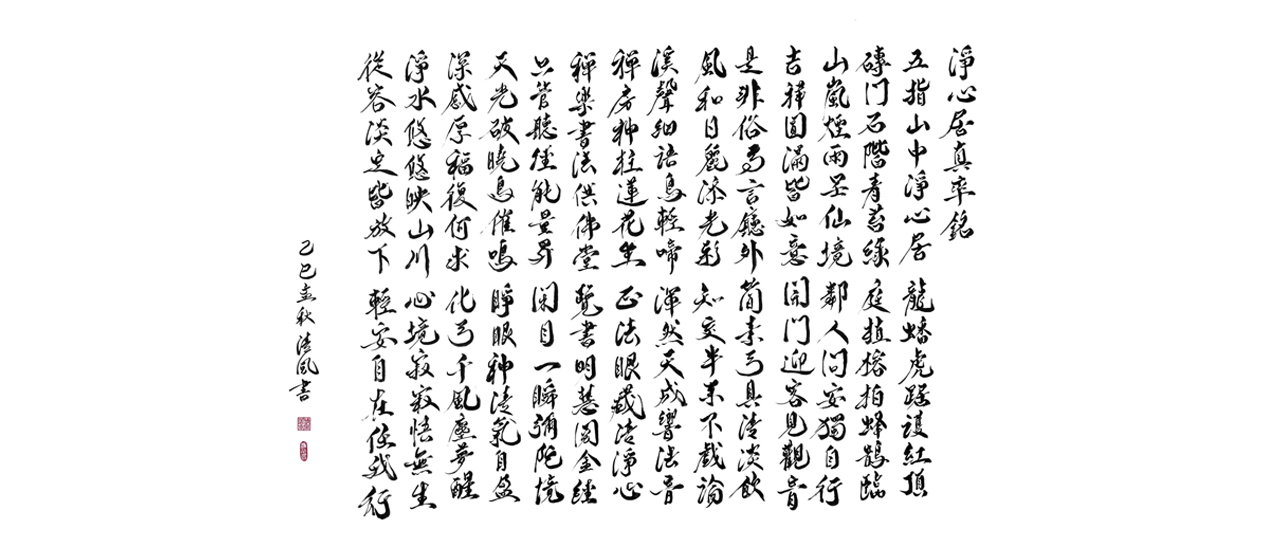 淨心居真率銘
五指山中淨心居 龍蟠虎踞護紅頂
磚門石階青苔綠 庭植榕柏蜂鵲臨
山嵐煙雨呈仙境 鄰人問安獨自行
吉祥圓滿皆如意 開門迎客見觀音
是非俗為言廳外 簡素為具清淡飲
風和日麗添光彩 知交半杯不戲論
溪聲細語鳥輕啼 渾然天成響法音
禪房神柱蓮花坐 正法眼藏清淨心
禪樂書法供佛堂 覽書明慧閱金經
只管聽經能量昇 閑目一瞬彌陀境
天光破曉鳥催鳴 睜眼神清氣自盈
深感厚福復何求 化為千風塵夢醒
淨水悠悠映山川 心境寂寂悟無生
從容淡定皆放下 輕安自在任我行
己巳孟秋清風書